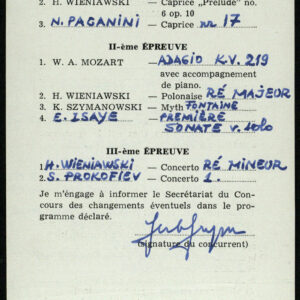 2. H. WIENIAWSKI — Caprice „Prelude" no. 6 op. 10
3. N. PAGANINI — Caprice nr 17
II-ème ÉPREUVE
1. W. A. MOZART — ADAGIO K.V. 219
avec accompagnement
de piano.
2. H. WIENIAWSKI — Polonaise RÉ MAJEUR
3. K. SZYMANOWSKI — Myth FONTAINE
4. E. ISAYE — PREMIÈRE
SONATE V. solo
III-ème ÉPREUVE
1. H. WIENIAWSKI — Concerto RÉ MINEUR
2. S. PROKOFIEV — Concerto 1.
Je m'engage à informer le Secrétariat du Con-
cours des changements éventuels dans le pro-
gramme déclaré.
(signature du concurrent)